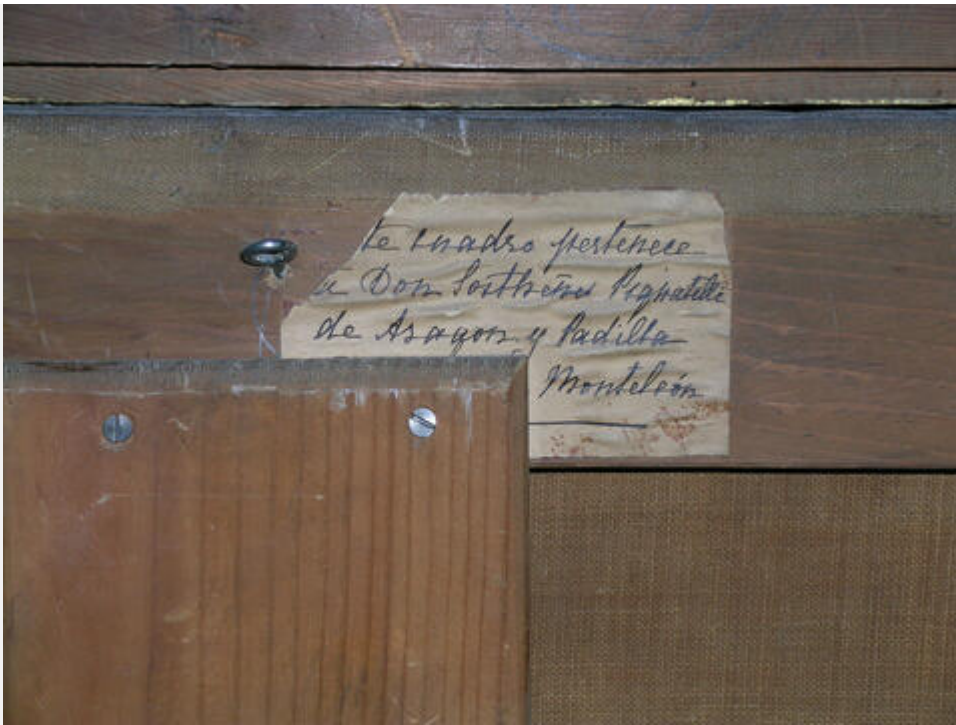 te cuadro pertenece
a Don Sosthènes Pignatelli
de Aragon y Padilla
Monteleón